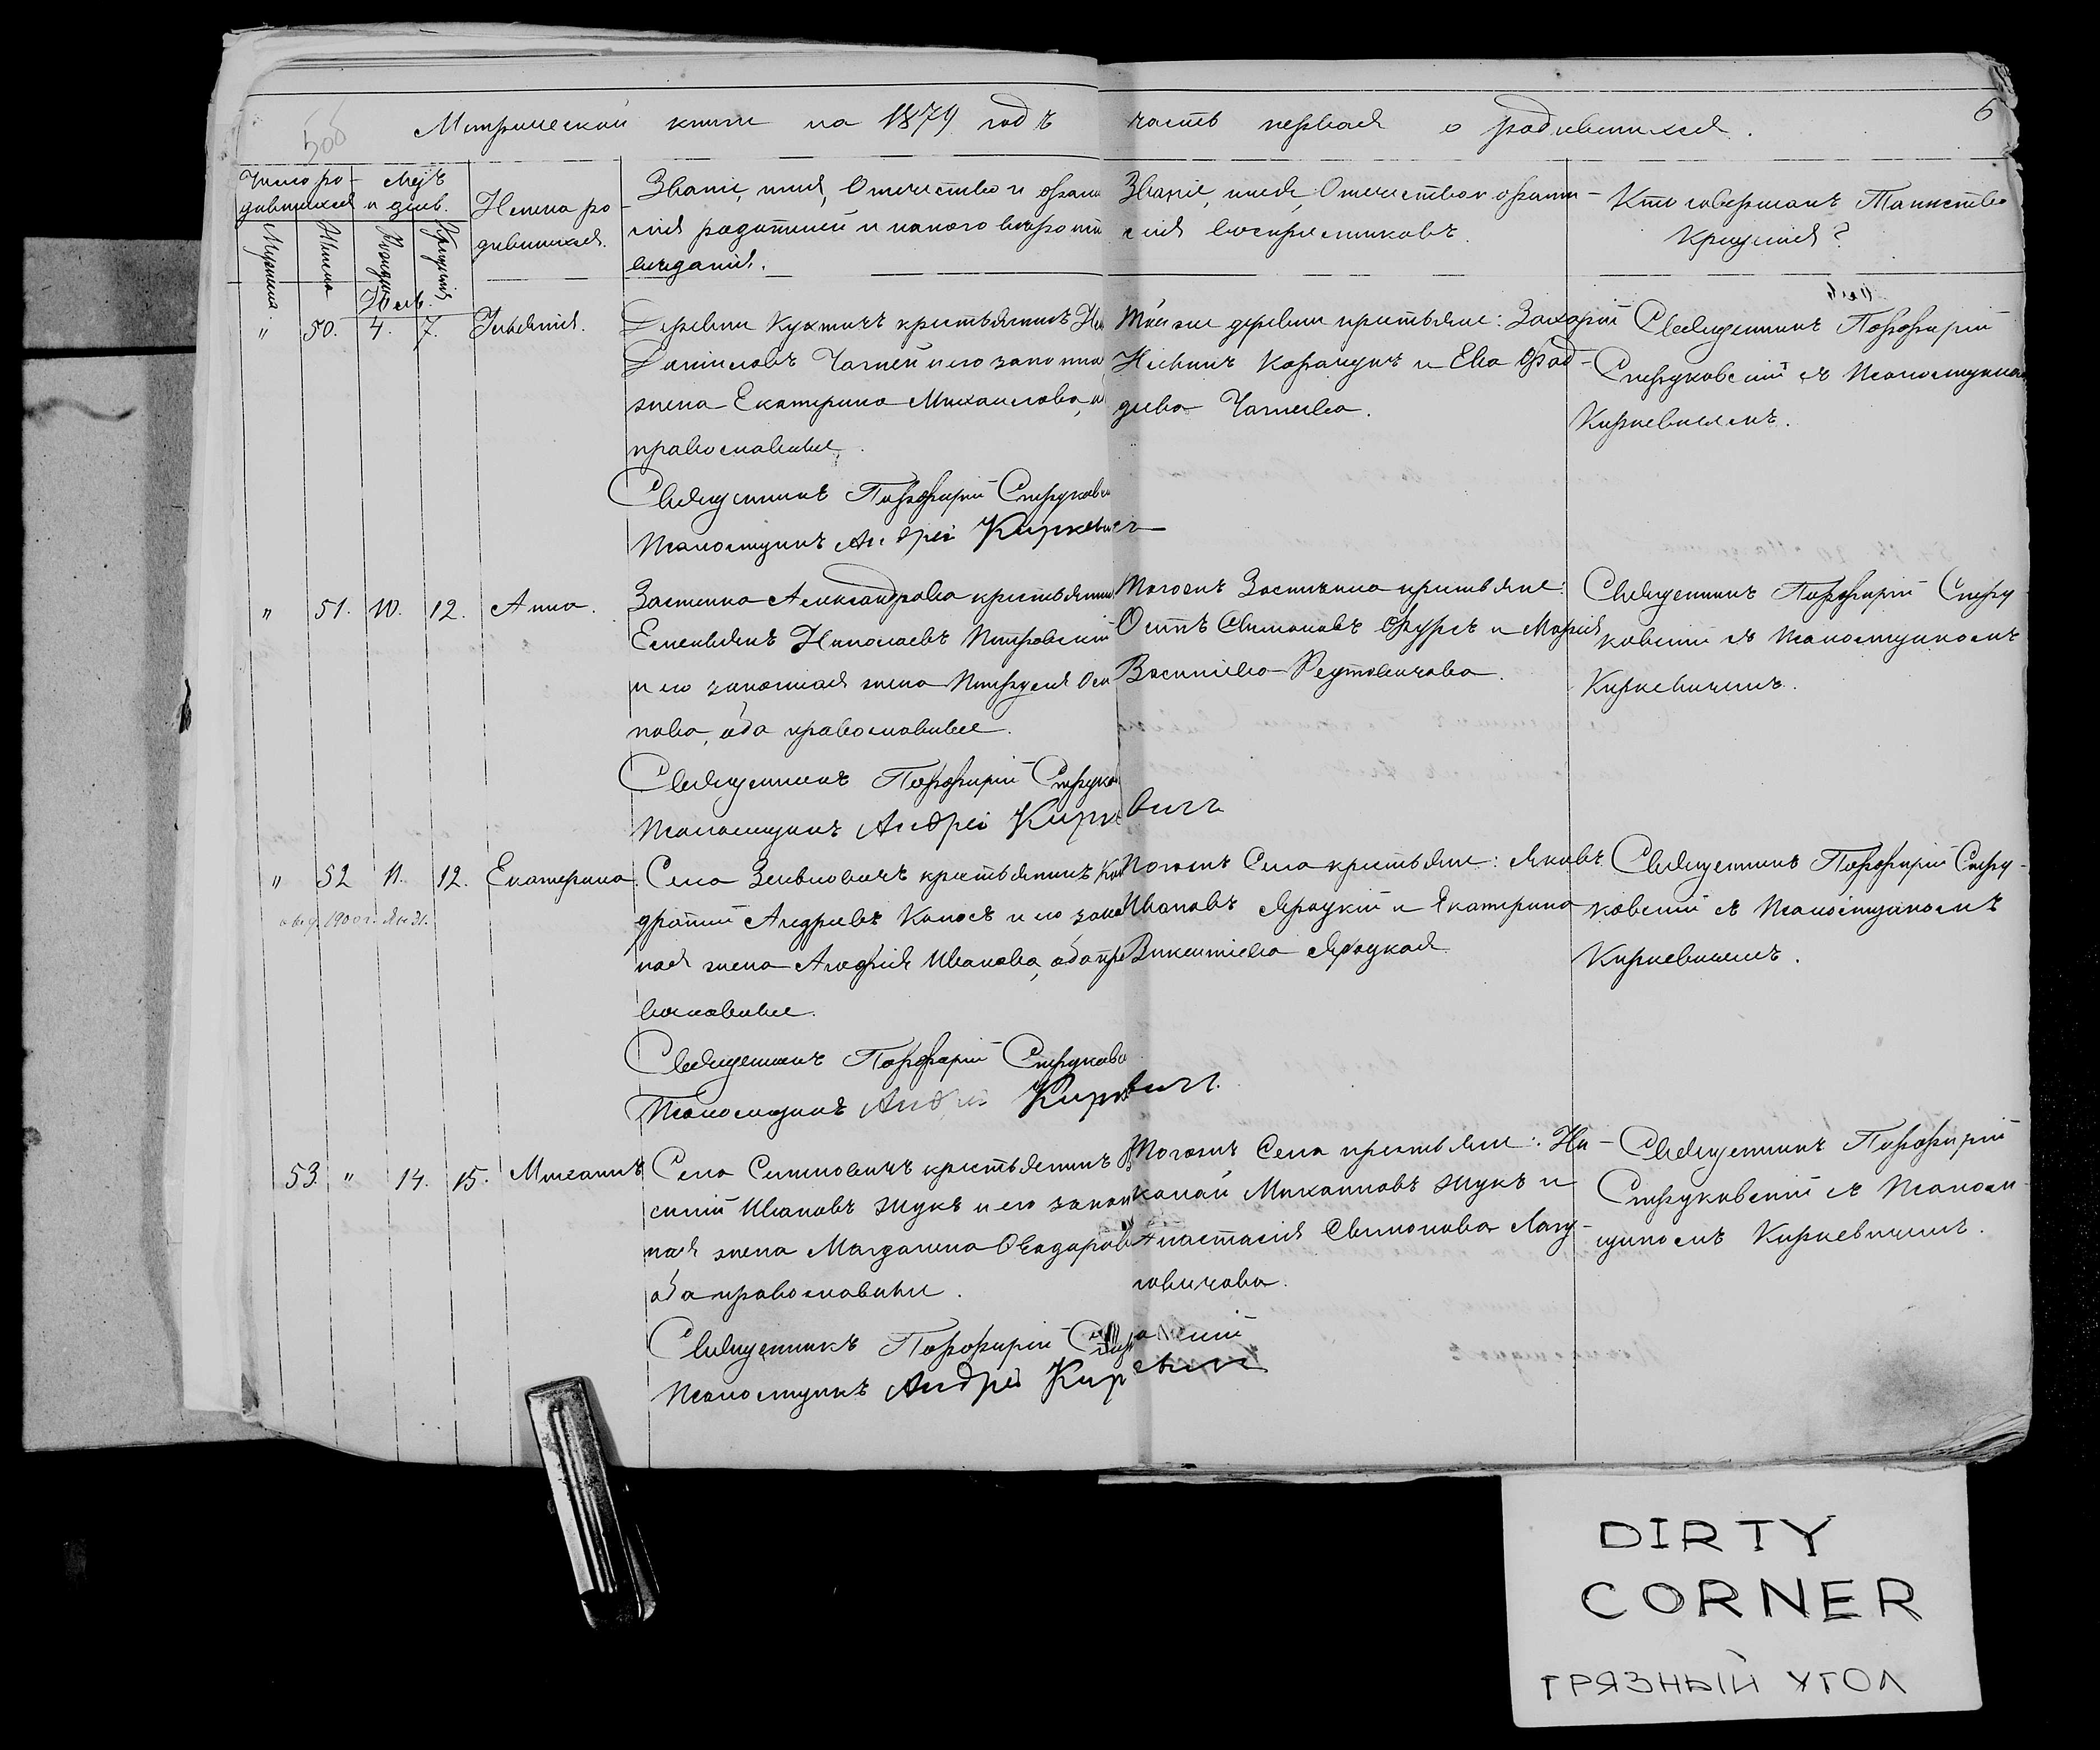 506
Метрической книги на 1879 годъ
часть первая о родившихся.
6
Число ро-
дившихся
Мѣсяцъ
и день.
Мужеска
Женска
Рожденія
Крещенія
Имена ро
дившихся.
Званіе, имя, Отечество и фами
лія родителей и какого вѣроис
вѣданія.
Званіе, имя, Отечество и фами-
лія воспріемниковъ.
Кто совершалъ Таинство
Крещенія?
Ноя
" 50. 4. 7. Іевеннія.
Деревни Кухтичъ крестьянинъ
Даніиловъ Чатей и его законна
жена Екатерина Михаилова,
православные.
Священникъ Порфирій Струковс
Псаломщикъ Андрей Киркевичъ
Той же деревни крестьяне: Захарій
Карачунъ и Ева Фад-
деева Чатева.
Священникъ Порфирій
Струковскій съ Псаломщикомъ
Киркевичемъ.
" 51. 10. 12. Анна.
Застенка Александрова крестьянин
Емельянъ Николаевъ Петровскій
и его законная жена Петруся Оси
пова, оба православные.
Священникъ Порфирій Струко
Псаломщикъ Андрей Киркевичъ
Тогожъ Застѣнка крестьяне:
Осипъ Семоновъ Фурсъ и Марія
Васильева Реутовичова.
Священникъ Порфирій Стру
ковскій съ Псаломщикомъ
Киркевичемъ.
" 52 11. 12. Екатерина.
1900 г. Ян 31.
Села Зеневичъ крестьянинъ Кон
дратій Андреевъ Колосъ и его закон
ная жена Агафія Иванова, оба пра
вославные.
Священникъ Порфирій Струковс
Псаломщикъ Андрей Киркевичъ.
Тогожъ Села крестьяне: Яковъ
Ивановъ Яроцкій и Екатерина
Викентіева Яроцкая.
Священникъ Порфирій Стру-
ковскій съ Псаломщикомъ
Киркевичемъ.
53. " 14. 15. Михаилъ
Села крестьянинъ Ва
силій Ивановъ Жукъ и его закон
ная жена Магдалена Ѳеодорова
оба православны.
Священникъ Порфирій Струковскій
Псаломщикъ Андрей Киркевичъ
Тогожъ Села крестьяне: Ни-
колай Михаиловъ Жукъ и
Анастасія Семонова Лагу-
Священникъ Порфирій
Струковскій съ Псаломщ
щикомъ Киркевичемъ.
DIRTY
CORNER
ГРЯЗНЫЙ УГОЛ